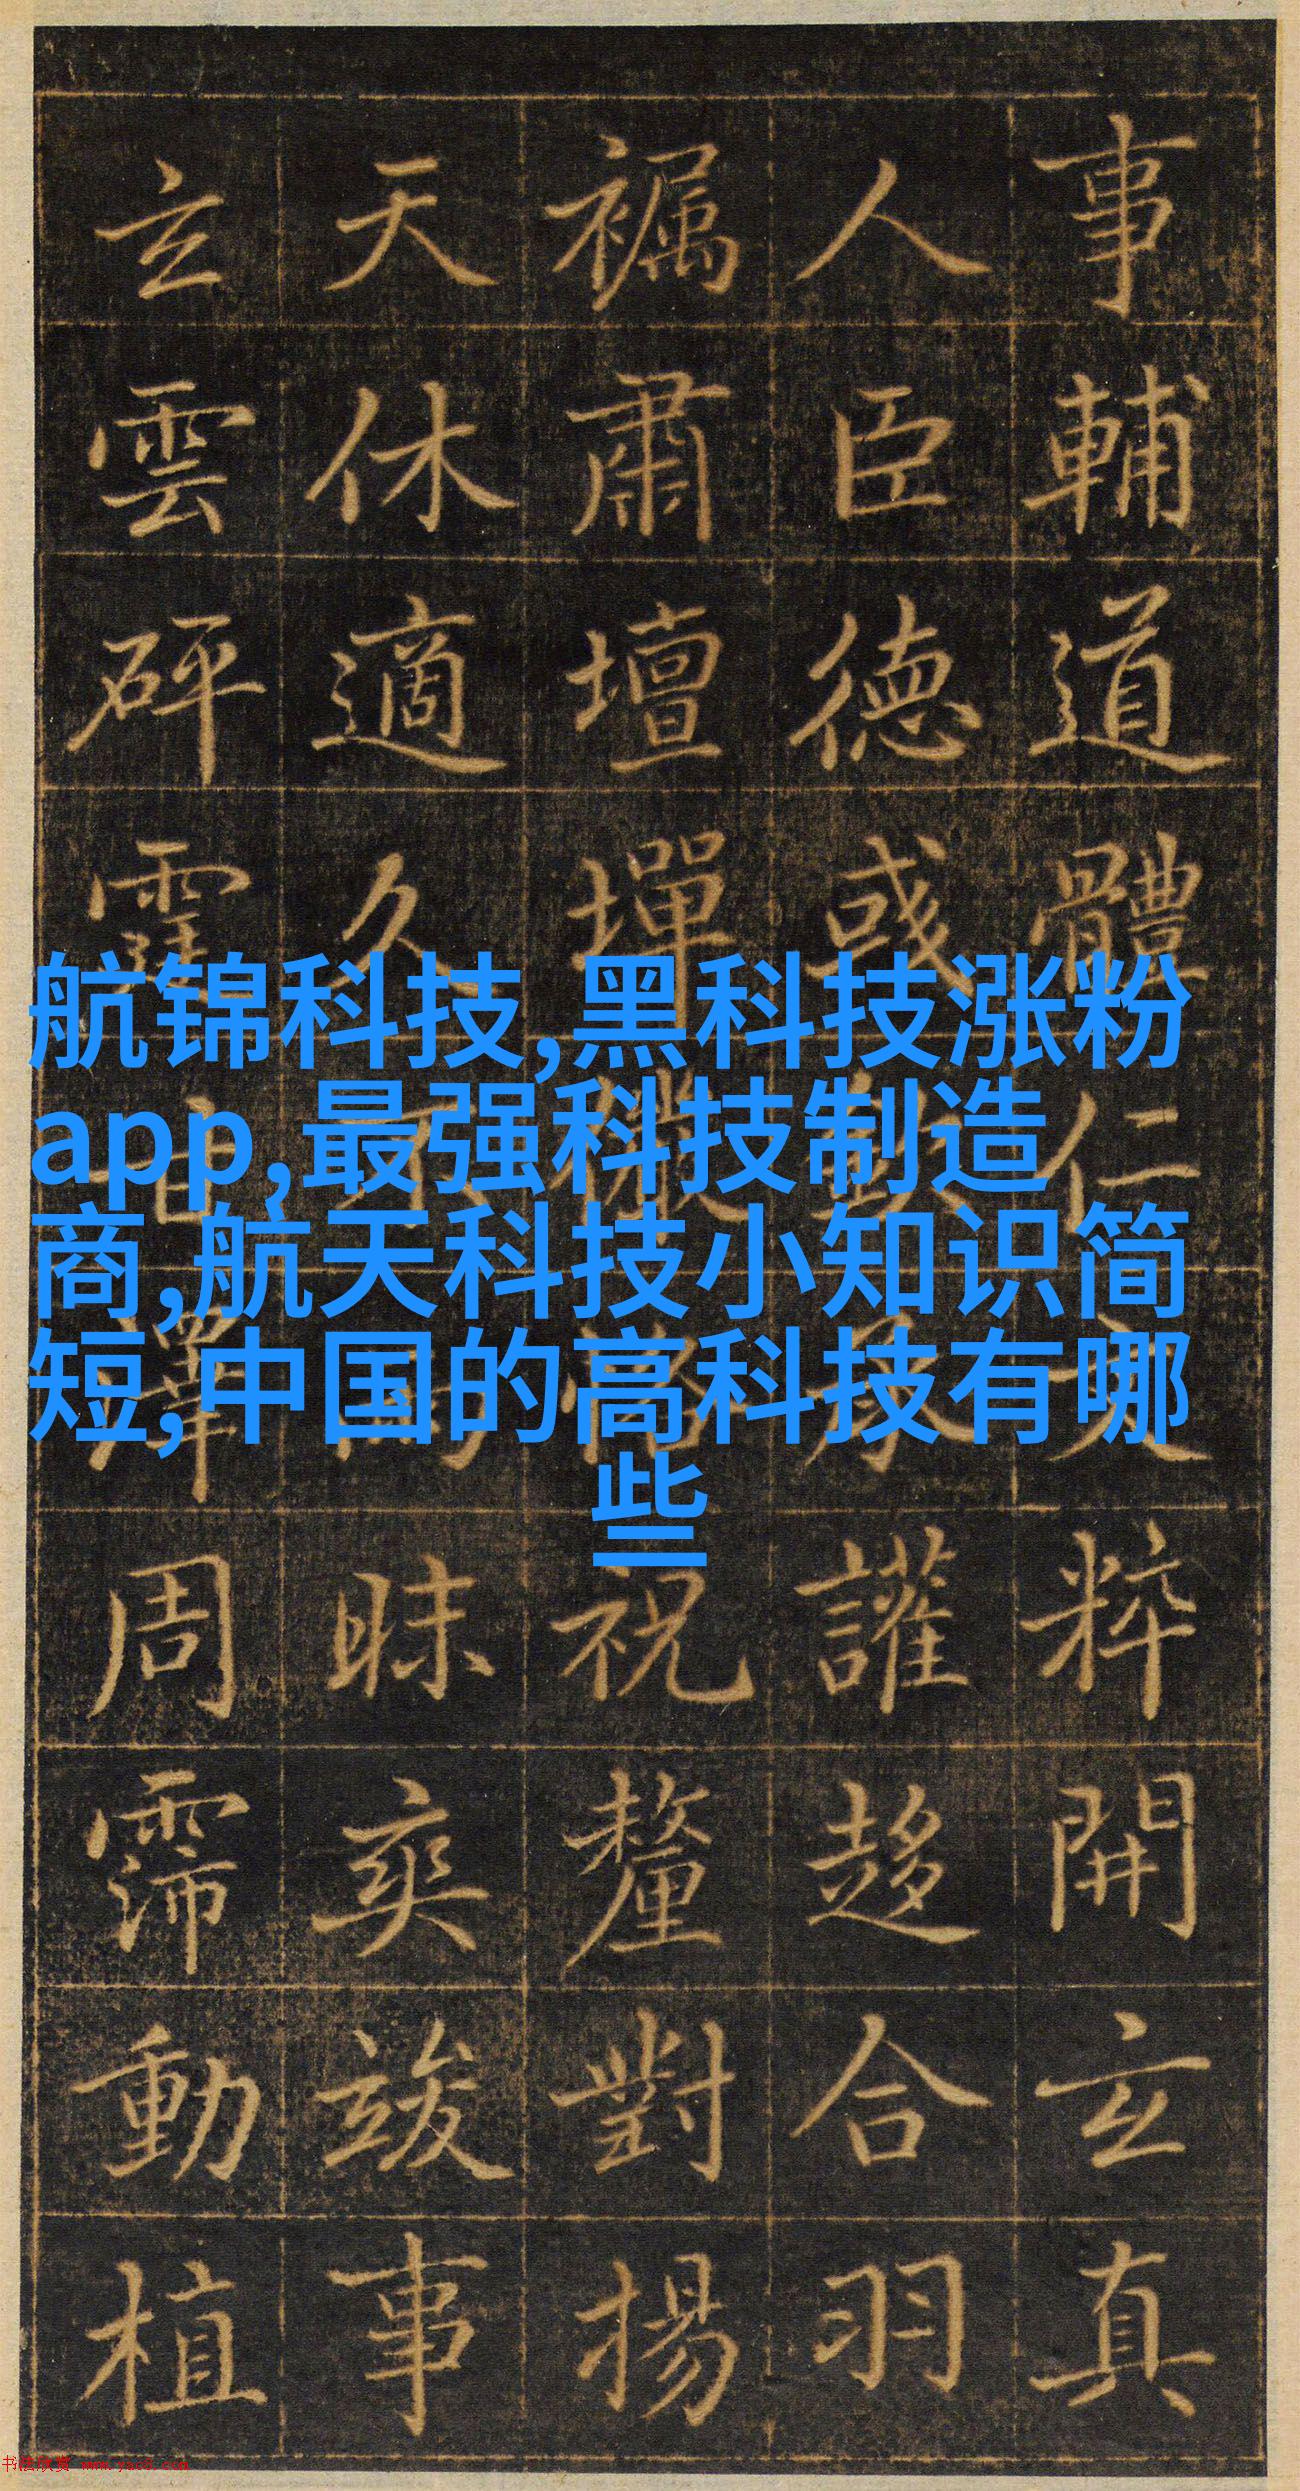 航锦科技,黑科技涨粉
app,最强科技制造
商,航天科技小知识简
短,中国的高科技有哪
些
事輔道體仁文粹開玄真
人臣德讙趍合羽
肅壇墠恪祝釐對揚
天休適久不雨昧爽竣事
玄雲砰靈甘澤周霈動植
书法欣赏 www.yac8.com